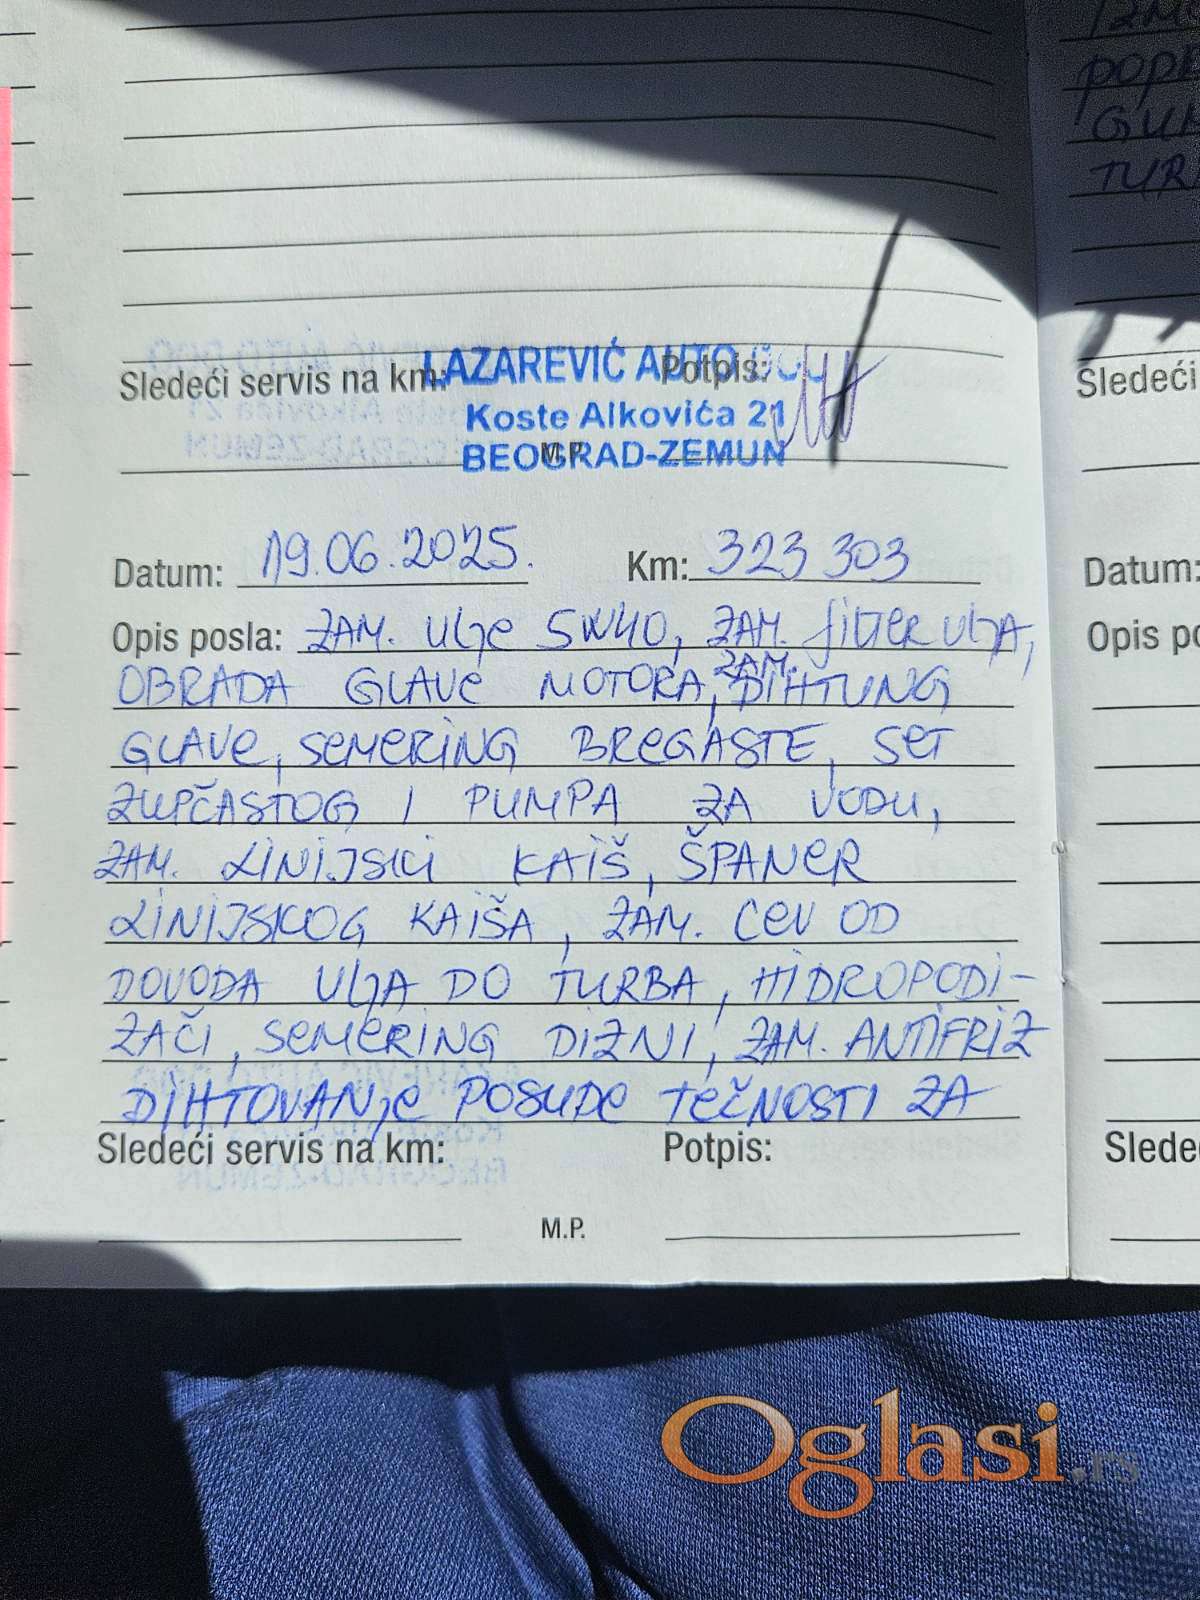 IZMO
POPR
GUM
TUR
Sledeći servis na km:
Potpis:
LAZAREVIĆ AUTO DOO
Koste Alkovića 21
M.P.
BEOGRAD-ZEMUN
Sledeći
Datum: 19.06.2025. Km: 323 303
Datum:
Opis posla: ZAM. ULJE 5W40, ZAM. FILTER ULJA,
Opis po
OBRADA GLAVE MOTORA, ZAM. DIHTUNG
GLAVE, SEMERING BREGASTE, SET
ZUPČASTOG I PUMPA ZA VODU,
ZAM. LINIJSKI KAIŠ, ŠPANER
LINIJSKOG KAIŠA, ZAM. CEV OD
DOVODA ULJA DO TURBA, HIDROPODI-
ZAČI, SEMERING DIZNI, ZAM. ANTIFRIZ
DIHTOVANJE POSUDE TEČNOSTI ZA
Sledeći servis na km: Potpis:
Slede
M.P.
Oglasi.rs